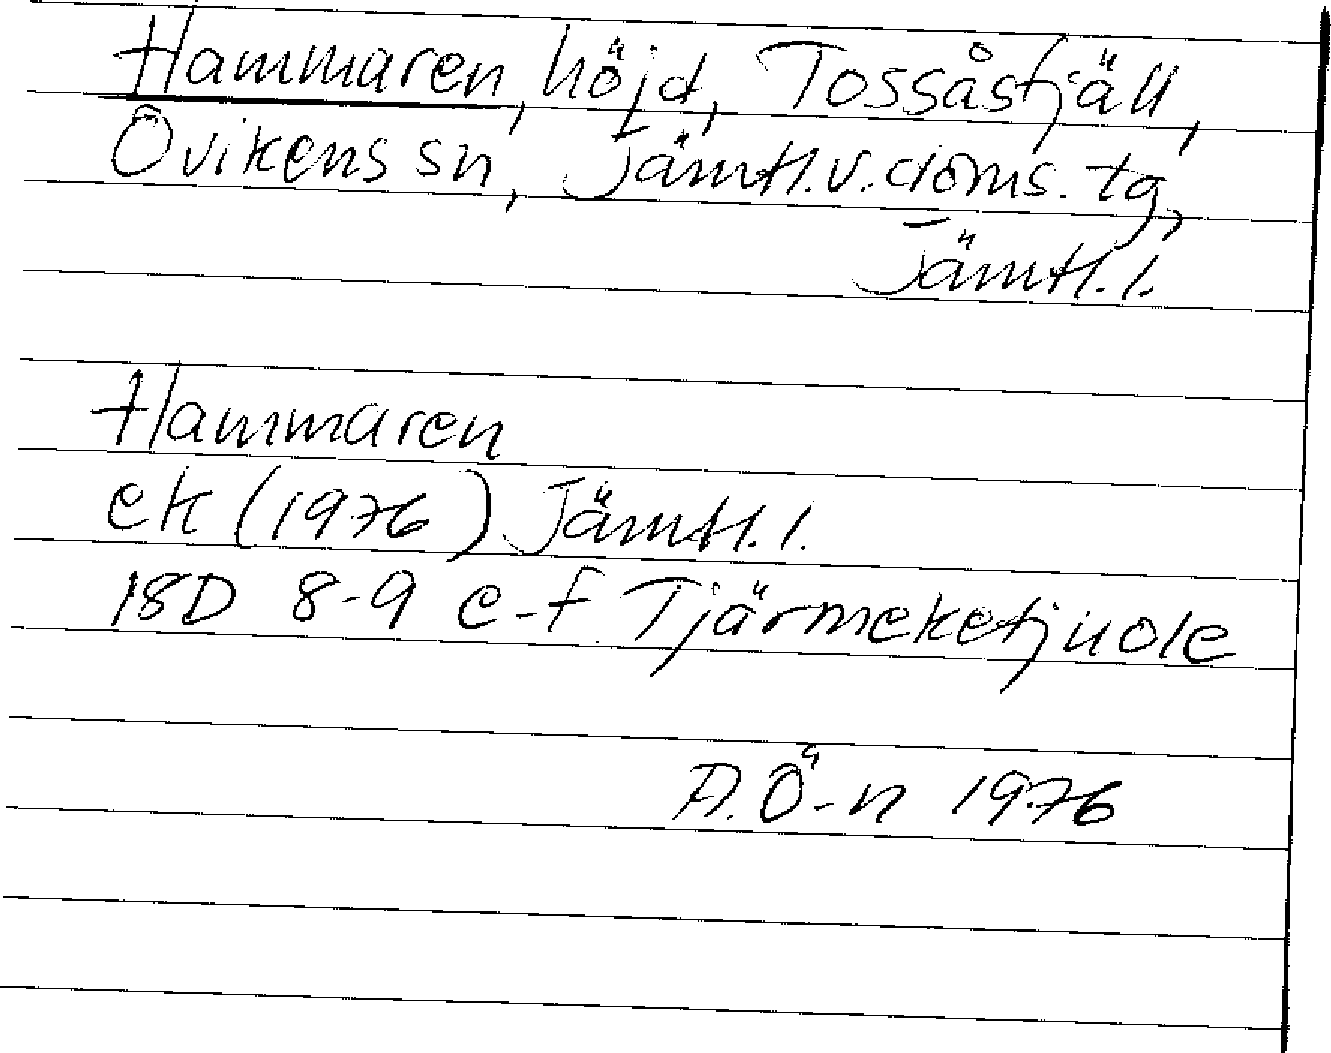 Hammaren, höjd, Tossåsfjäll,
Övikens sn, Jämtl.v.doms. tg,
Jämtl. l.
Hammaren
ek (1976) Jämtl. l.
18D 8-9 e-f Tjärmeketjuole
A.Ö-n 1976